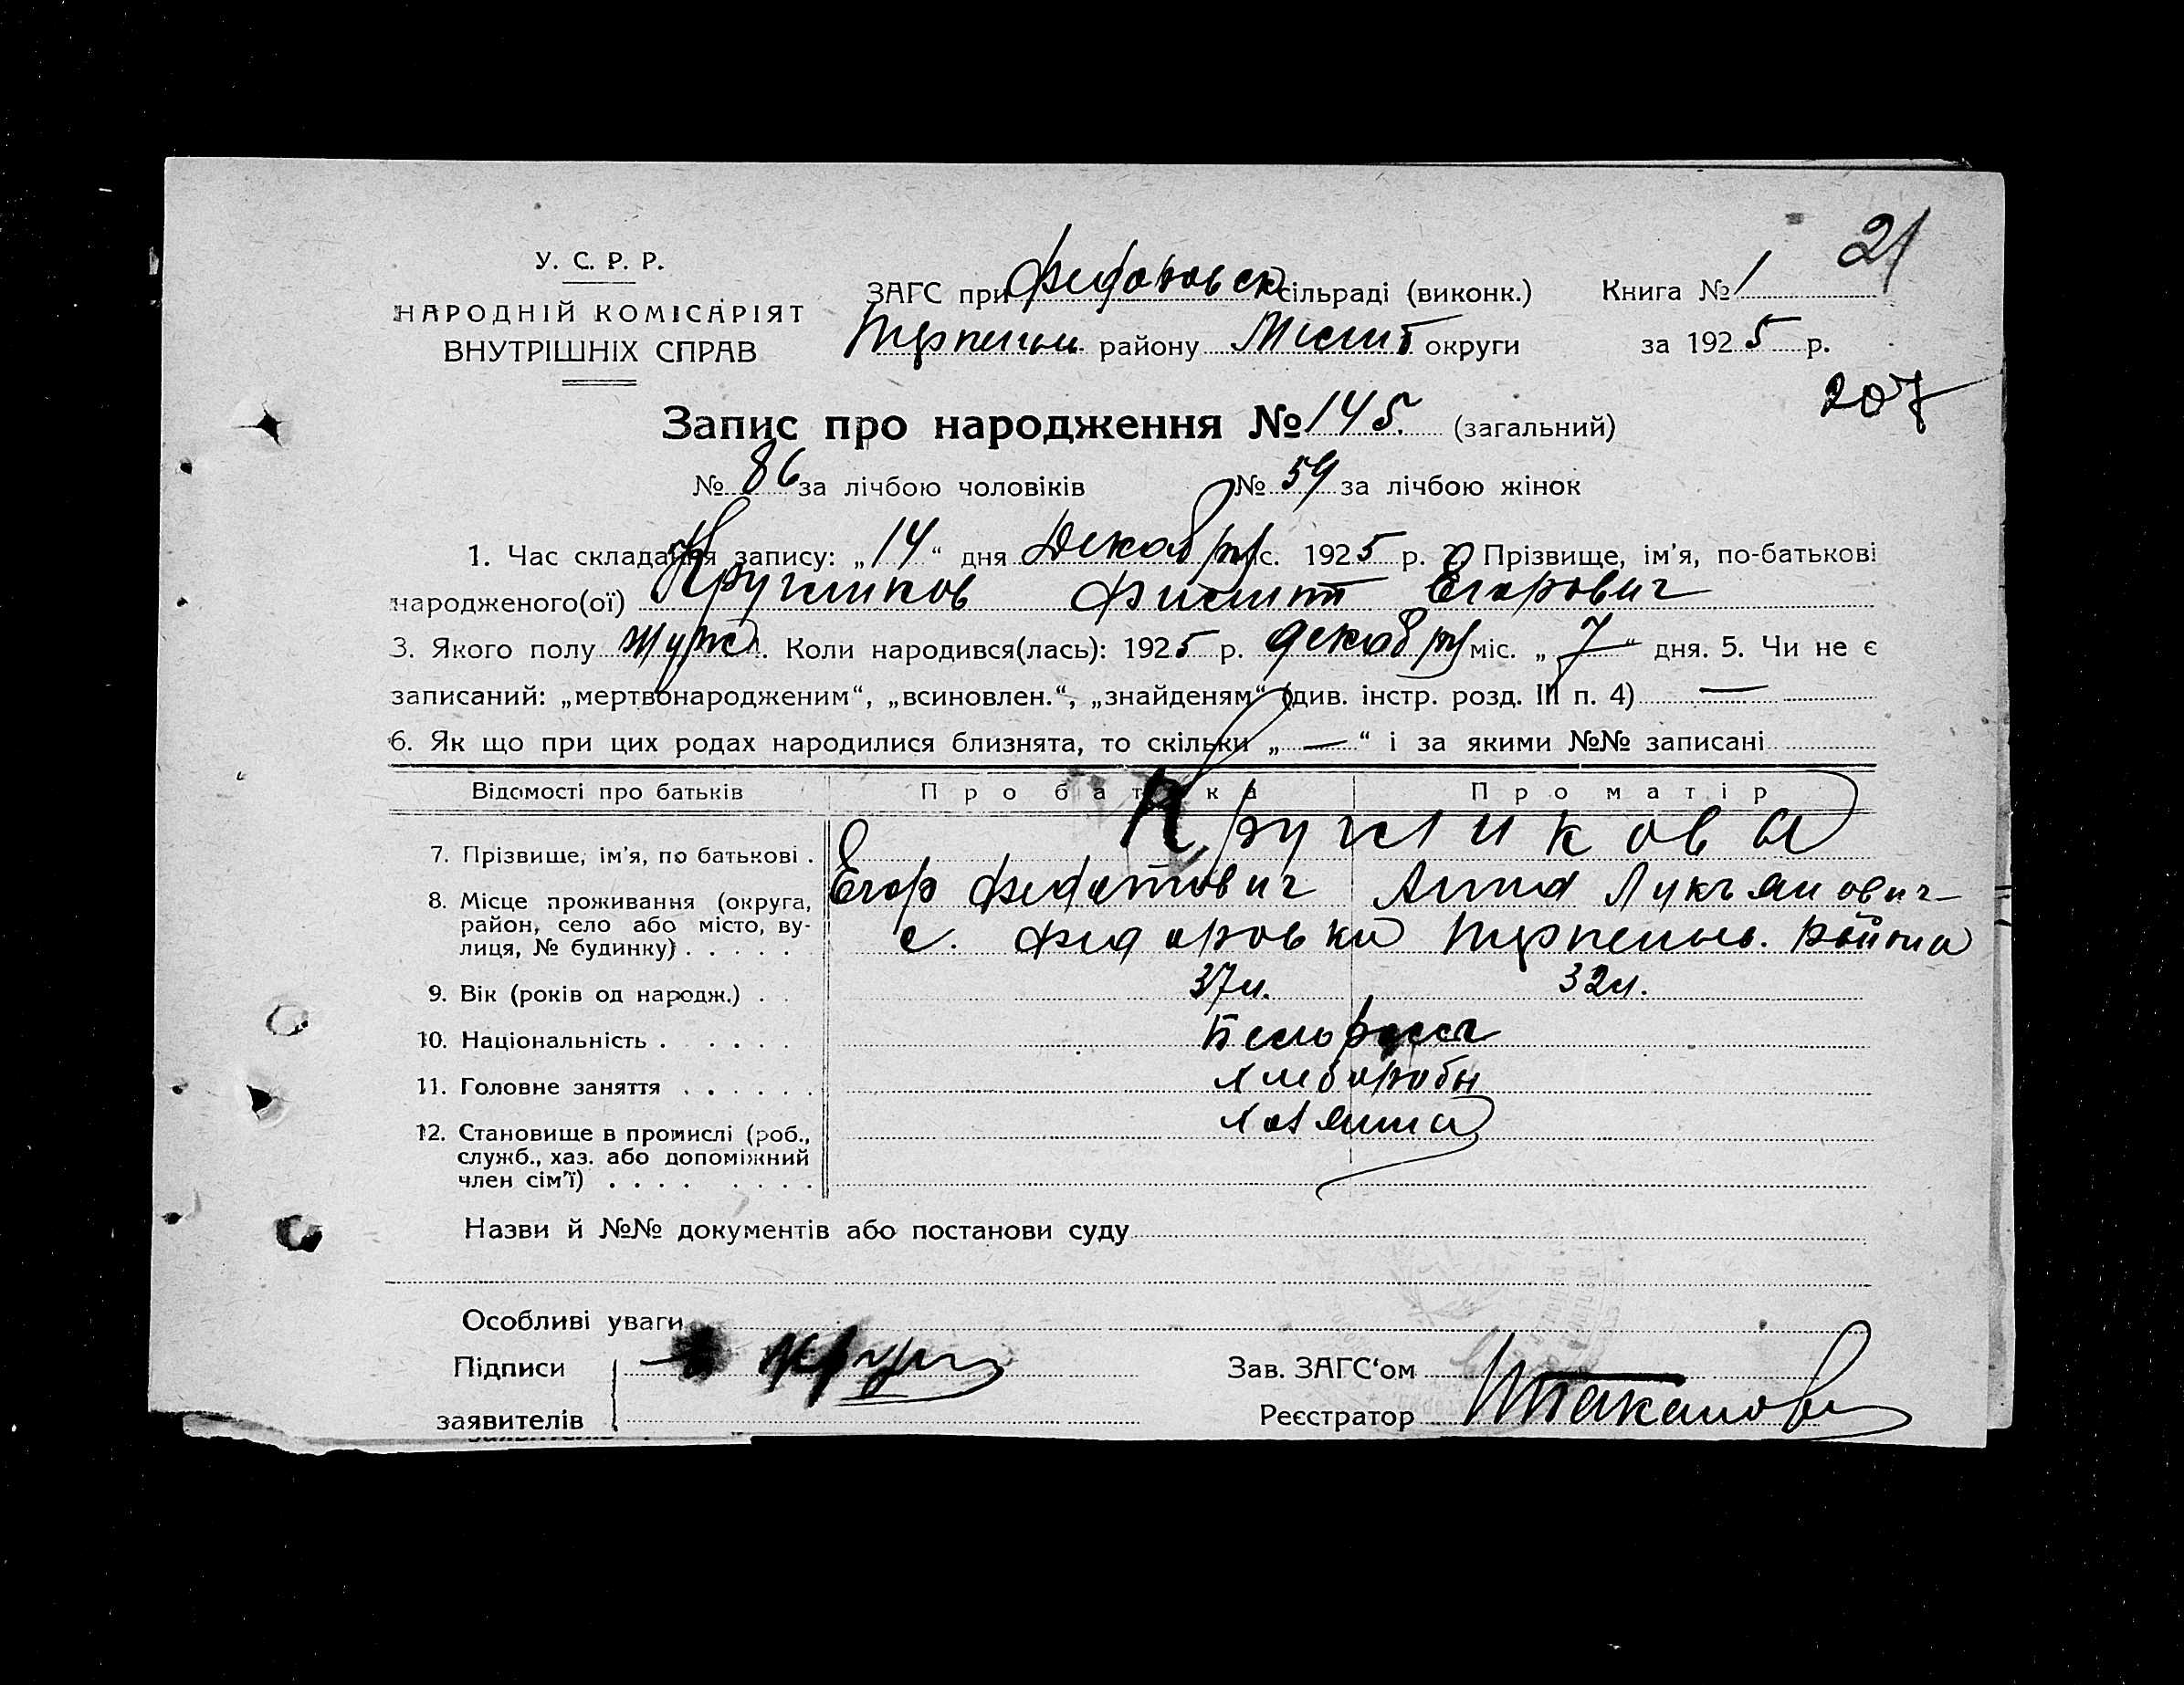 21
У. С. Р. Р.
НАРОДНІЙ КОМІСАРІЯТ
ВНУТРІШНІХ СПРАВ
ЗАГС при Федоровск сільраді (виконк.) Книга № 1
Терпеньи. району Меліт округи за 1925 р.
207
Запис про народження № 145. (загальний)
№ 86 за лічбою чоловіків № 59 за лічбою жінок
1. Час складання запису: „14“ дня Декабря міс. 1925 р. 2. Прізвище, ім’я, по-батькові
народженого(ої) Кругликов Филипп Егорович
3. Якого полу муж. Коли народився(лась): 1925 р. декабря міс. „7“ дня. 5. Чи не є
записаний: „мертвонародженим“, „всиновлен.“, „знайденям“ (див. інстр. розд. III п. 4) —
6. Як що при цих родах народилися близнята, то скільки „—“ і за якими №№ записані
Відомості про батьків Про батька Про матір
7. Прізвище, ім’я, по батькові . Кругликовы
8. Місце проживання (округа, Егор Федотович Анна Лукьянович
район, село або місто, ву-
лиця, № будинку) . . . . . с. Федоровка Терпеньи. района
9. Вік (років од народж.) . . 37 л. 32 л.
10. Національність . . . . . . Белоросы
11. Головне заняття . . . . . . хлеборобы
12. Становище в промислі (роб., хозяина
служб., хаз. або допоміжний
член сім’ї) . . . . . . . .
Назви й №№ документів або постанови суду
Особливі уваги
Підписи
заявителів
Зав. ЗАГС‘ом
Реєстратор